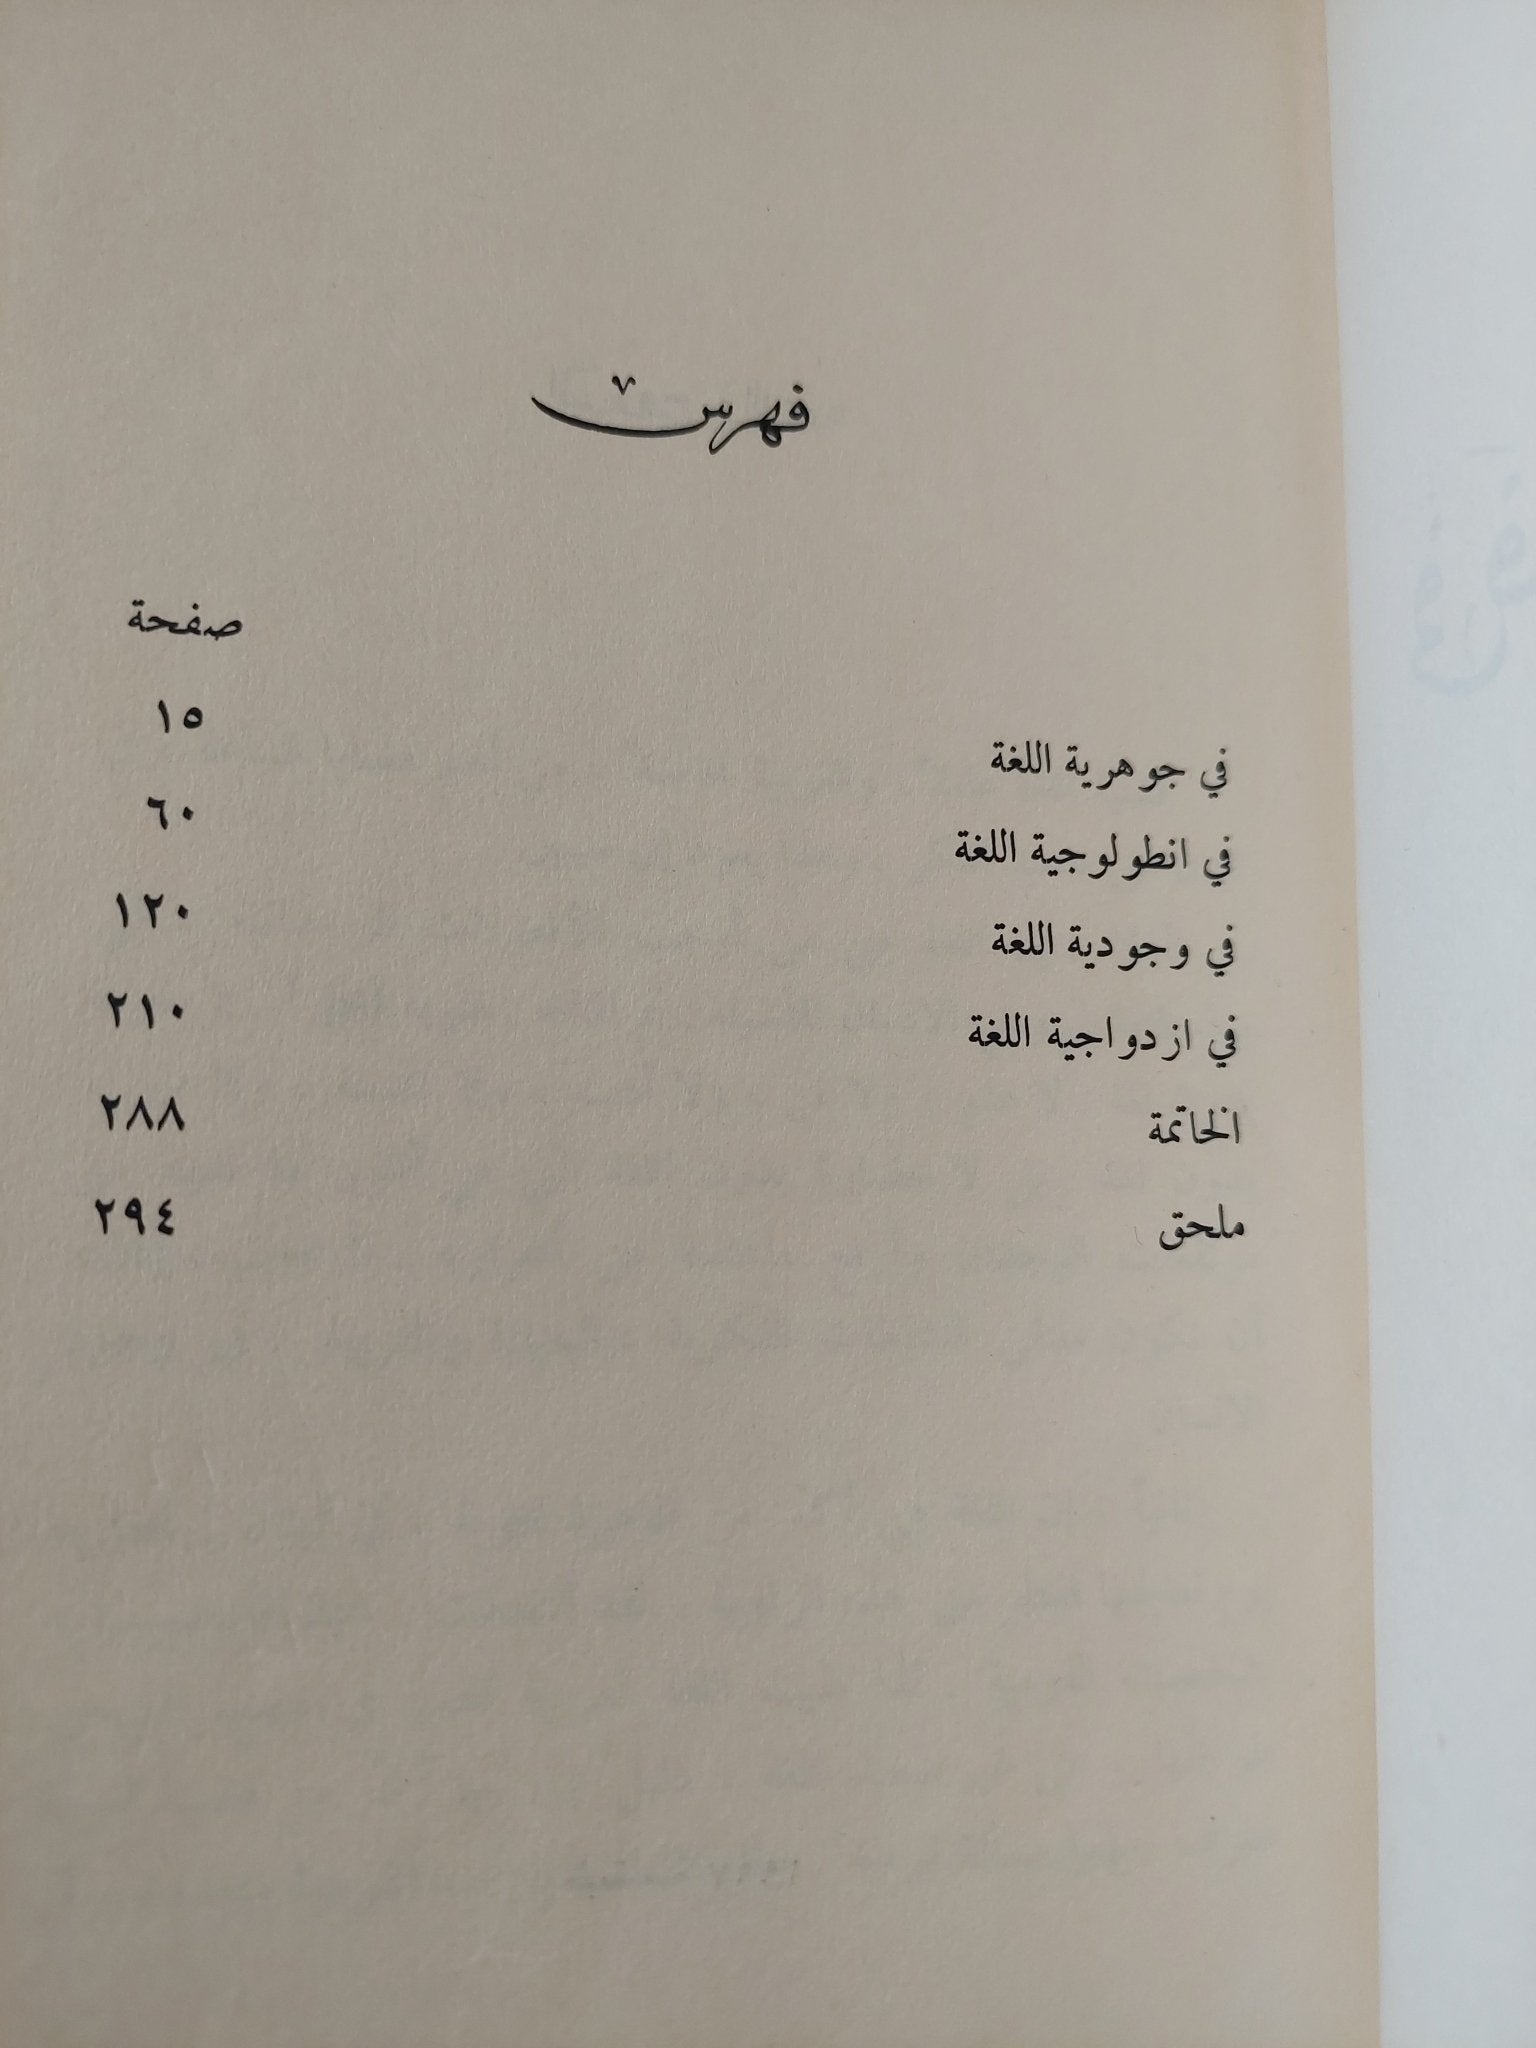 فهرس
صفحة
في جوهرية اللغة ١٥
في انطولوجية اللغة ٦٠
في وجودية اللغة ١٢٠
في ازدواجية اللغة ٢١٠
الخاتمة ٢٨٨
ملحق ٢٩٤